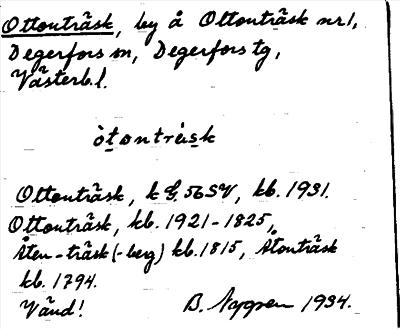 Ottonträsk, by å Ottonträsk nr 1,
Degerfors sn, Degerfors tg,
Västerb. l.
òtonträ̀sk
Ottonträsk, k G. 56 SV, kb. 1931.
Ottonträsk, kb. 1921-1825,
Åten-träsk (-berg) kb. 1815, Åtonträsk
kb. 1794.
Vänd! B. 1934.